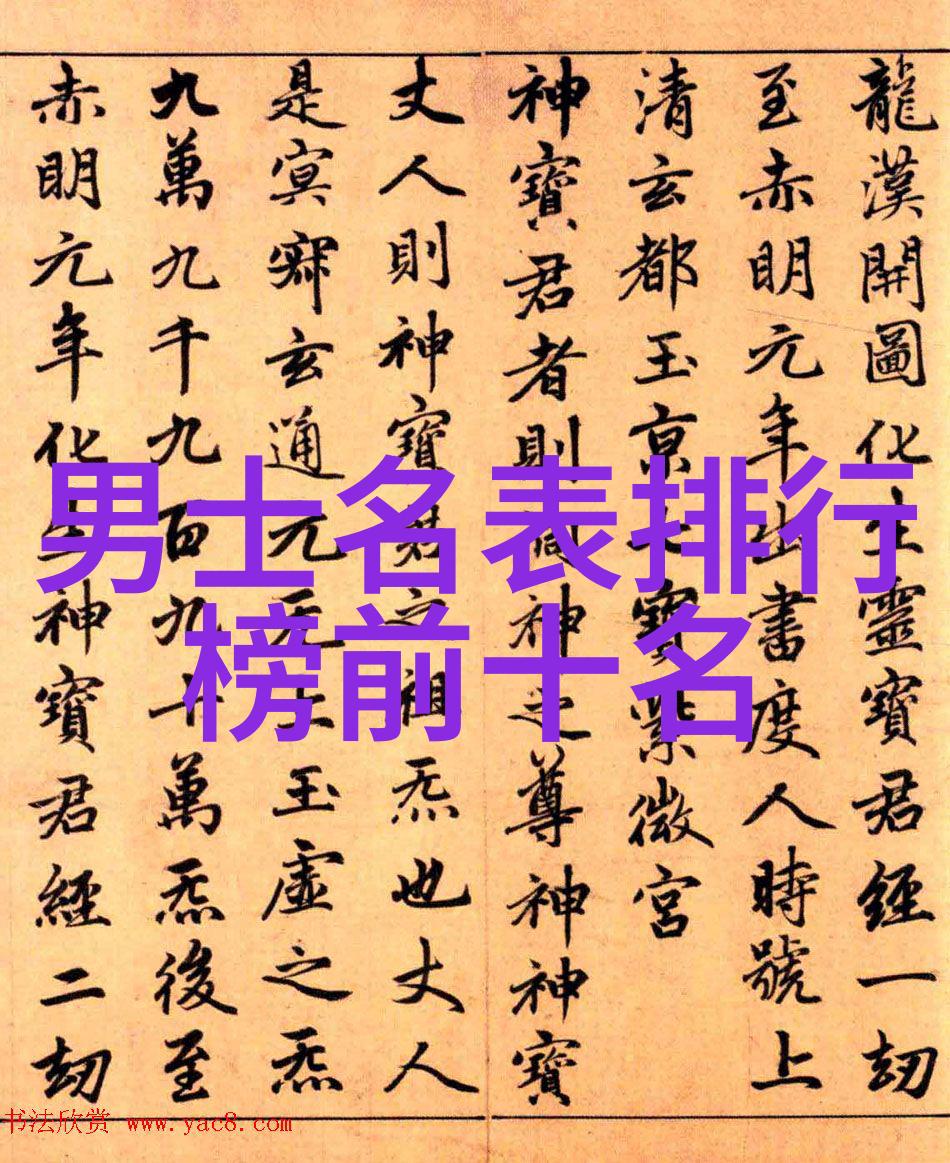 龍漢開圖化生靈寶君經一劫
至赤明元年出書度人時號上
清玄都玉京七寶紫微宮
神寶君者則洞神之尊神神寶
丈人則神寶君之祖炁也丈人
是冥寂玄通元无上玉虛之炁
九萬九千九百九十萬炁後至
赤明元年化生神寶君經二劫
男士名表排行
榜前十名
书法欣赏 www.yac8.com